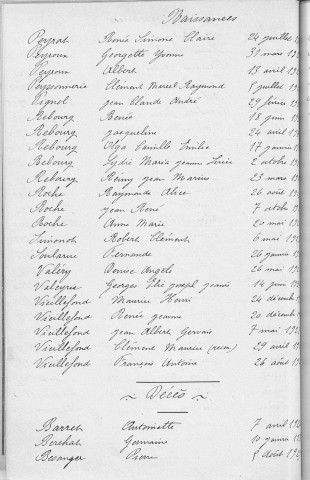 Naissances
Peyrat Renée Simone Claire 24 juillet
Peyroux Georgette Yvonne 30 mars 19
Peyroux Albert 15 avril 19
Peyssonnerie Clément Marcel Raymond 5 juillet 19
Pignol jean Claude André 29 février 19
Rebourg Renée 18 juin 19
Rebourg jacqueline 24 avril 19
Rebourg Olga Emilie 17 janvier
Rebourg Lydie Maria jeanne 2 octobre 19
Rebourg Rémy jean Marius 23 mars 19
Roche Raymonde Alice 26 août 19
Roche jean René 7 octobre 19
Roche Anne Marie 20 mai 19
Simonot Robert Clément 6 mai 19
Soularue Fernande 26 janvier
Valéry Denise Angèle 26 mai 19
Valeyrie Georges Elie joseph 14 juin 19
Vieillefond Maurice Henri 24 décembre
Vieillefond Renée jeanne 20 décembre
Vieillefond jean Albert Gervais 7 mai 19
Vieillefond Clément Maurice 29 avril 19
Vieillefond François Antoine 26 août 19
~ Décès ~
Barret Antoinette 7 avril 19
Berehat Germaine 10 janvier 19
Besanger Pierre 5 août 19